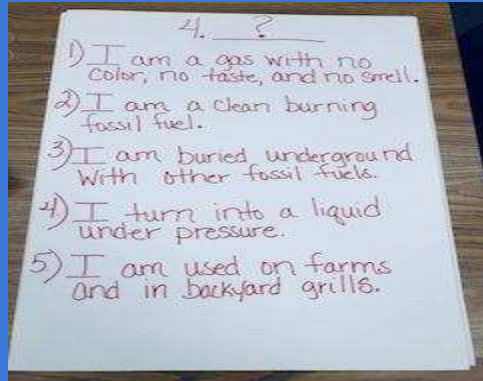 4. ?
1) I am a gas with no
color, no taste, and no smell.
2) I am a clean burning
fossil fuel.
3) I am buried underground
With other fossil fuels.
4) I turn into a liquid
under pressure.
5) I am used on farms
and in backyard grills.